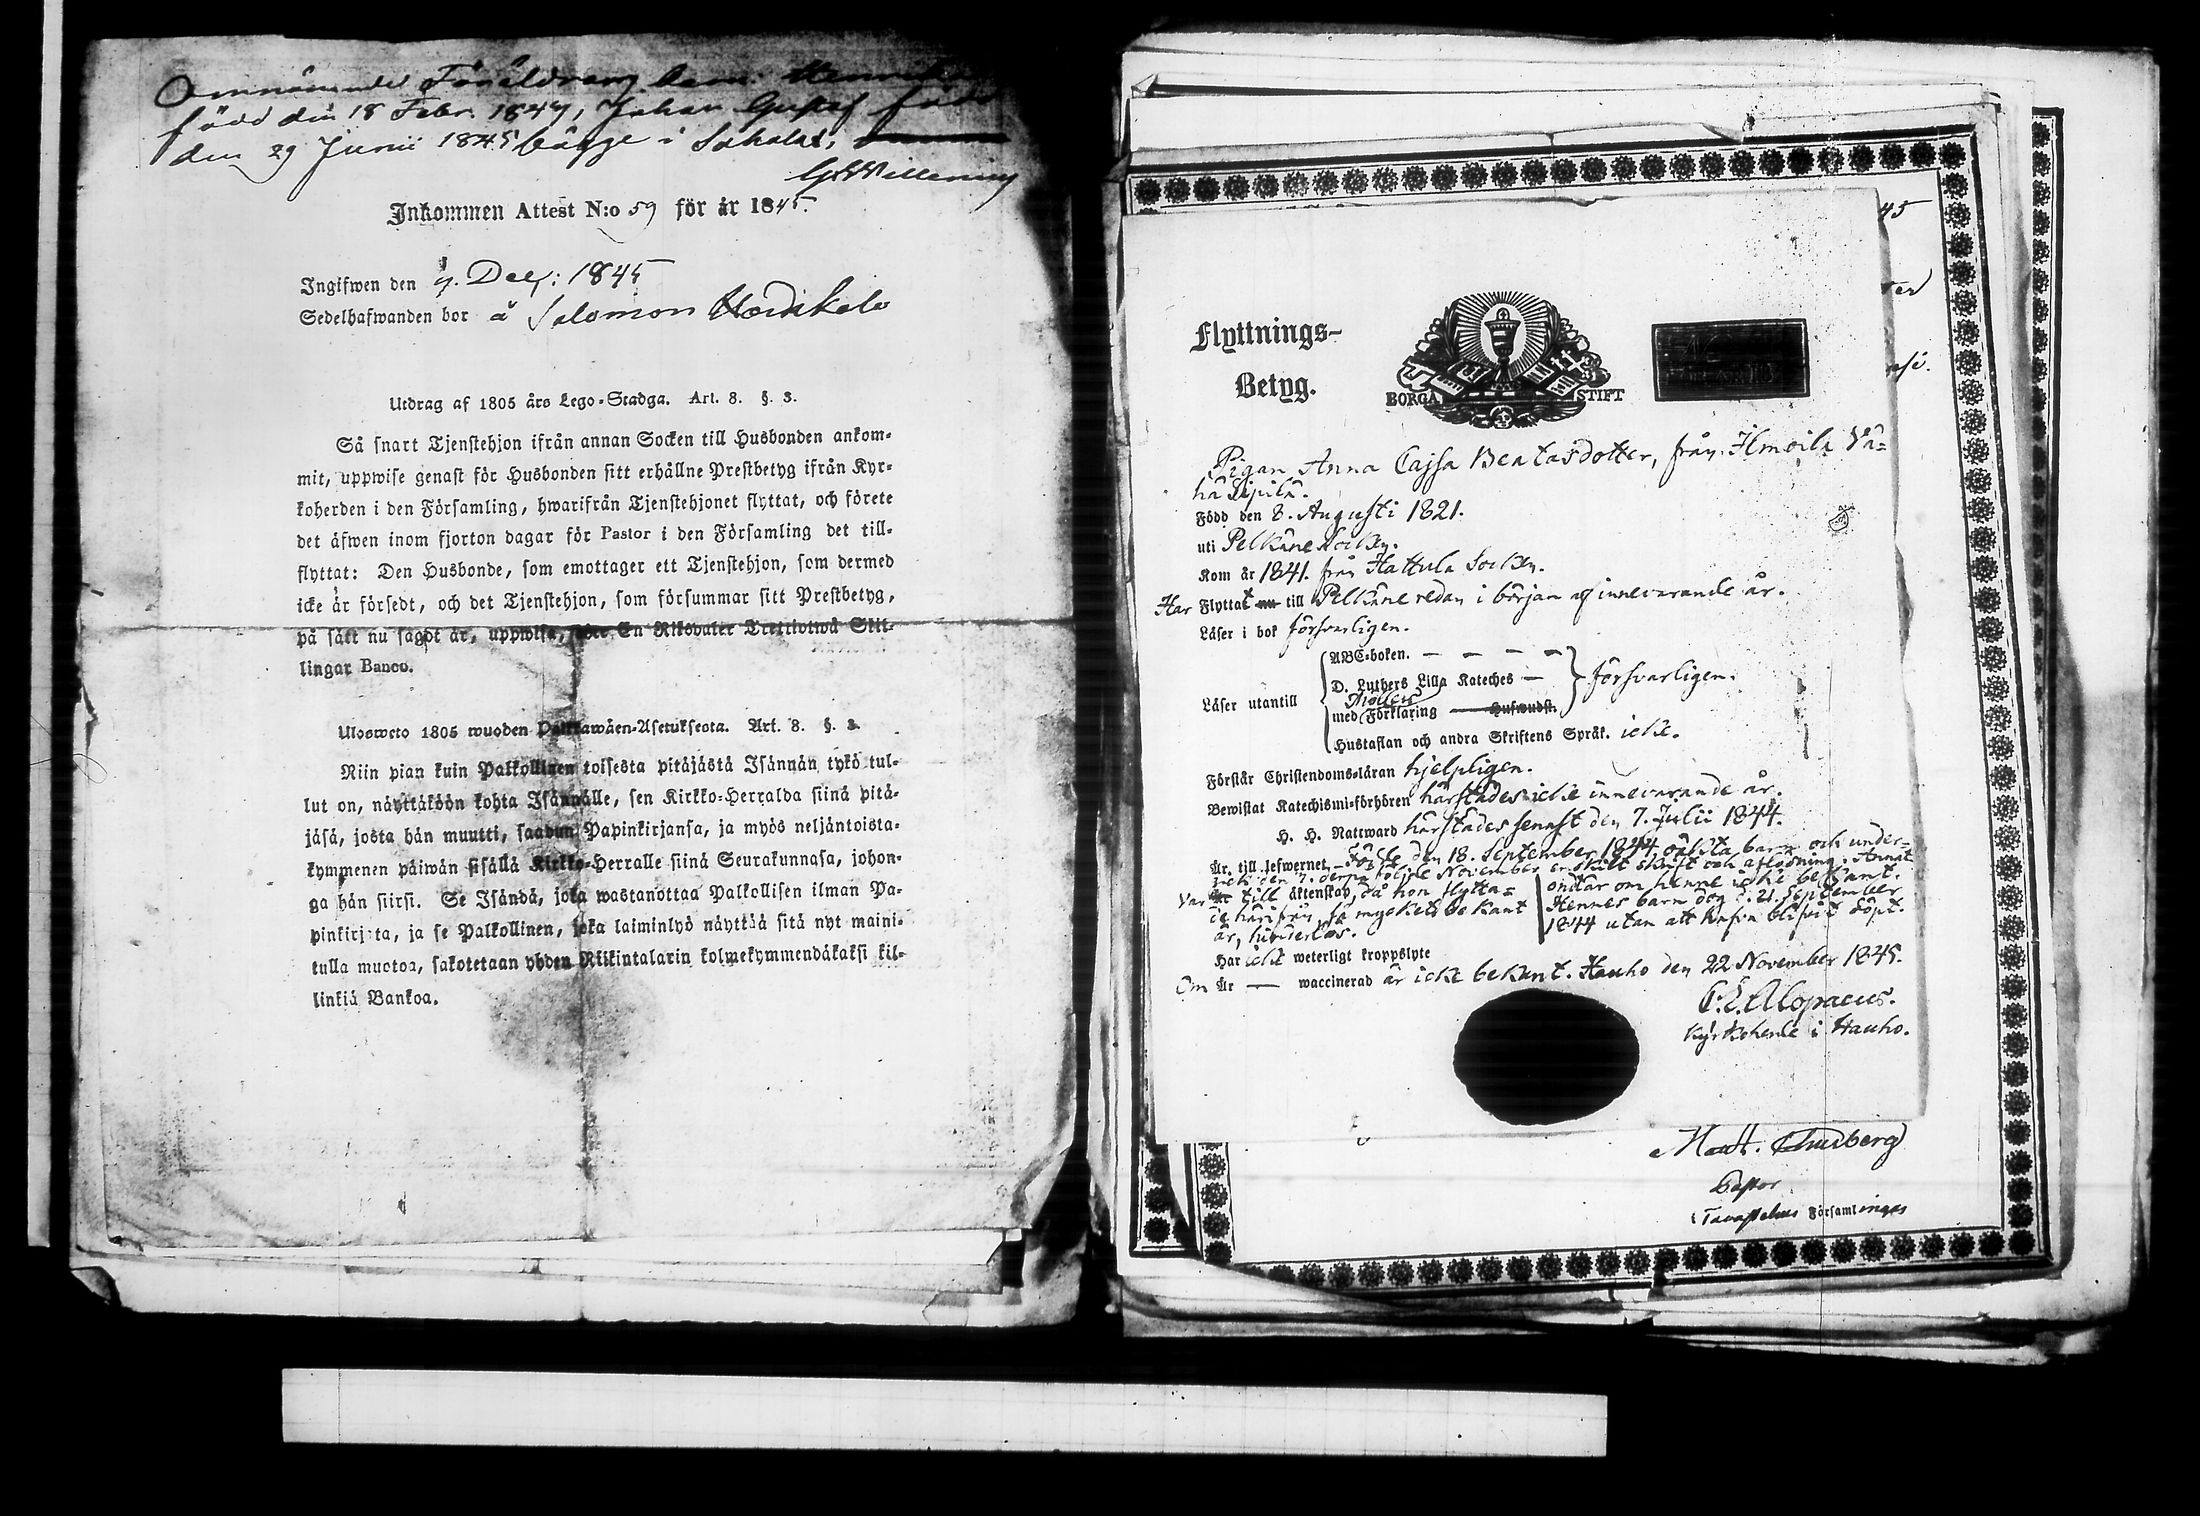 Omnämnde Föräldrars barn: Henrika
född den 18 Febr. 1844, Johan Gustaf född
den 29 Junii 1845 bägge i Sahalax,
Inkommen Attest N:o 59 för år 1845.
Ingifwen den 9. Dec: 1845
Sedelhafwanden bor å Salomon
Utdrag af 1805 års Lego-Stadga. Art. 8. §. 3.
Så snart Tjenstehjon ifrån annan Socken till Husbonden ankom-
mit, uppwise genast för Husbonden sitt erhållne Prestbetyg ifrån Kyr-
koherden i den Församling, hwarifrån Tjenstehjonet flyttat, och förete
det äfwen inom fjorton dagar för Pastor i den Församling det till-
flyttat: Den Husbonde, som emottager ett Tjenstehjon, som dermed
icke är försedt, och det Tjenstehjon, som försummar sitt Prestbetyg,
på sätt nu sagdt är, uppwisa, böte En Riksdaler Trettiotwå Skil-
lingar Banco.
Ulosweto 1805 wuoden Palkkawäen-Asetuksesta. Art. 8. §. 3.
Niin pian kuin Palkollinen toisesta pitäjästä Isännän tykö tul-
lut on, näyttäköön kohta Isännälle, sen Kirkko-Herralda siinä pitä-
jäsä, josta hän muutti, saadun Papinkirjansa, ja myös neljäntoista-
kymmenen päiwän sisällä Kirkko-Herralle siinä Seurakunnasa, johon-
ga hän siirsi. Se Isändä, joka wastanottaa Palkollisen ilman Pa-
pinkirjata, ja se Palkollinen, joka laiminlyö näyttää sitä nyt maini-
tulla muotoa, sakotetaan yhden Riikintalarin kolmekymmendäkaksi kil-
linkiä Bankoa.
45
Flyttnings-
Betyg.
BORGÅ STIFT
Pigan Anna Cajsa Beatasdotter, från Ilmoila Vä-
hä Sipilä.
Född den 8. Augusti 1821.
uti Pelkäne Socken.
Kom år 1841. från Hattula Socken.
Har Flyttat nu till Pelkäne redan i början af innevarande år.
Läser i bok försvarligen.
Läser utantill
ABC-boken. — — — —
D. Luthers Lilla Kateches — försvarligen.
med Förklaring — Hufwudst.
Hustaflan och andra Skriftens Språk. icke.
Förstår Christendoms-läran hjelpligen.
Bewistat Katechismi-förhören härstädes icke innevarande år.
H. H. Nattward härstädes senast den 7. Julii 1844.
Är till lefwernet — Födde den 18. September 1844 oäkta barn och under-
gick den 7. derpå följde November enskilt skrift och aflösning. Annat
Var till äktenskap, då hon flytta-
de härifrån, så mycket bekant
är, hinderlös.
ondt är om henne icke bekant.
Hennes barn dog d. 21. September
1844 utan att hafva blifvit döpt.
Har icke weterligt kroppslyte
Om Är — waccinerad är icke bekant. Hauho den 22 November 1845.
C. E. Alopaeus.
Kyrkoherde i Hauho.
Pastor
i Tavastehus Församlingar